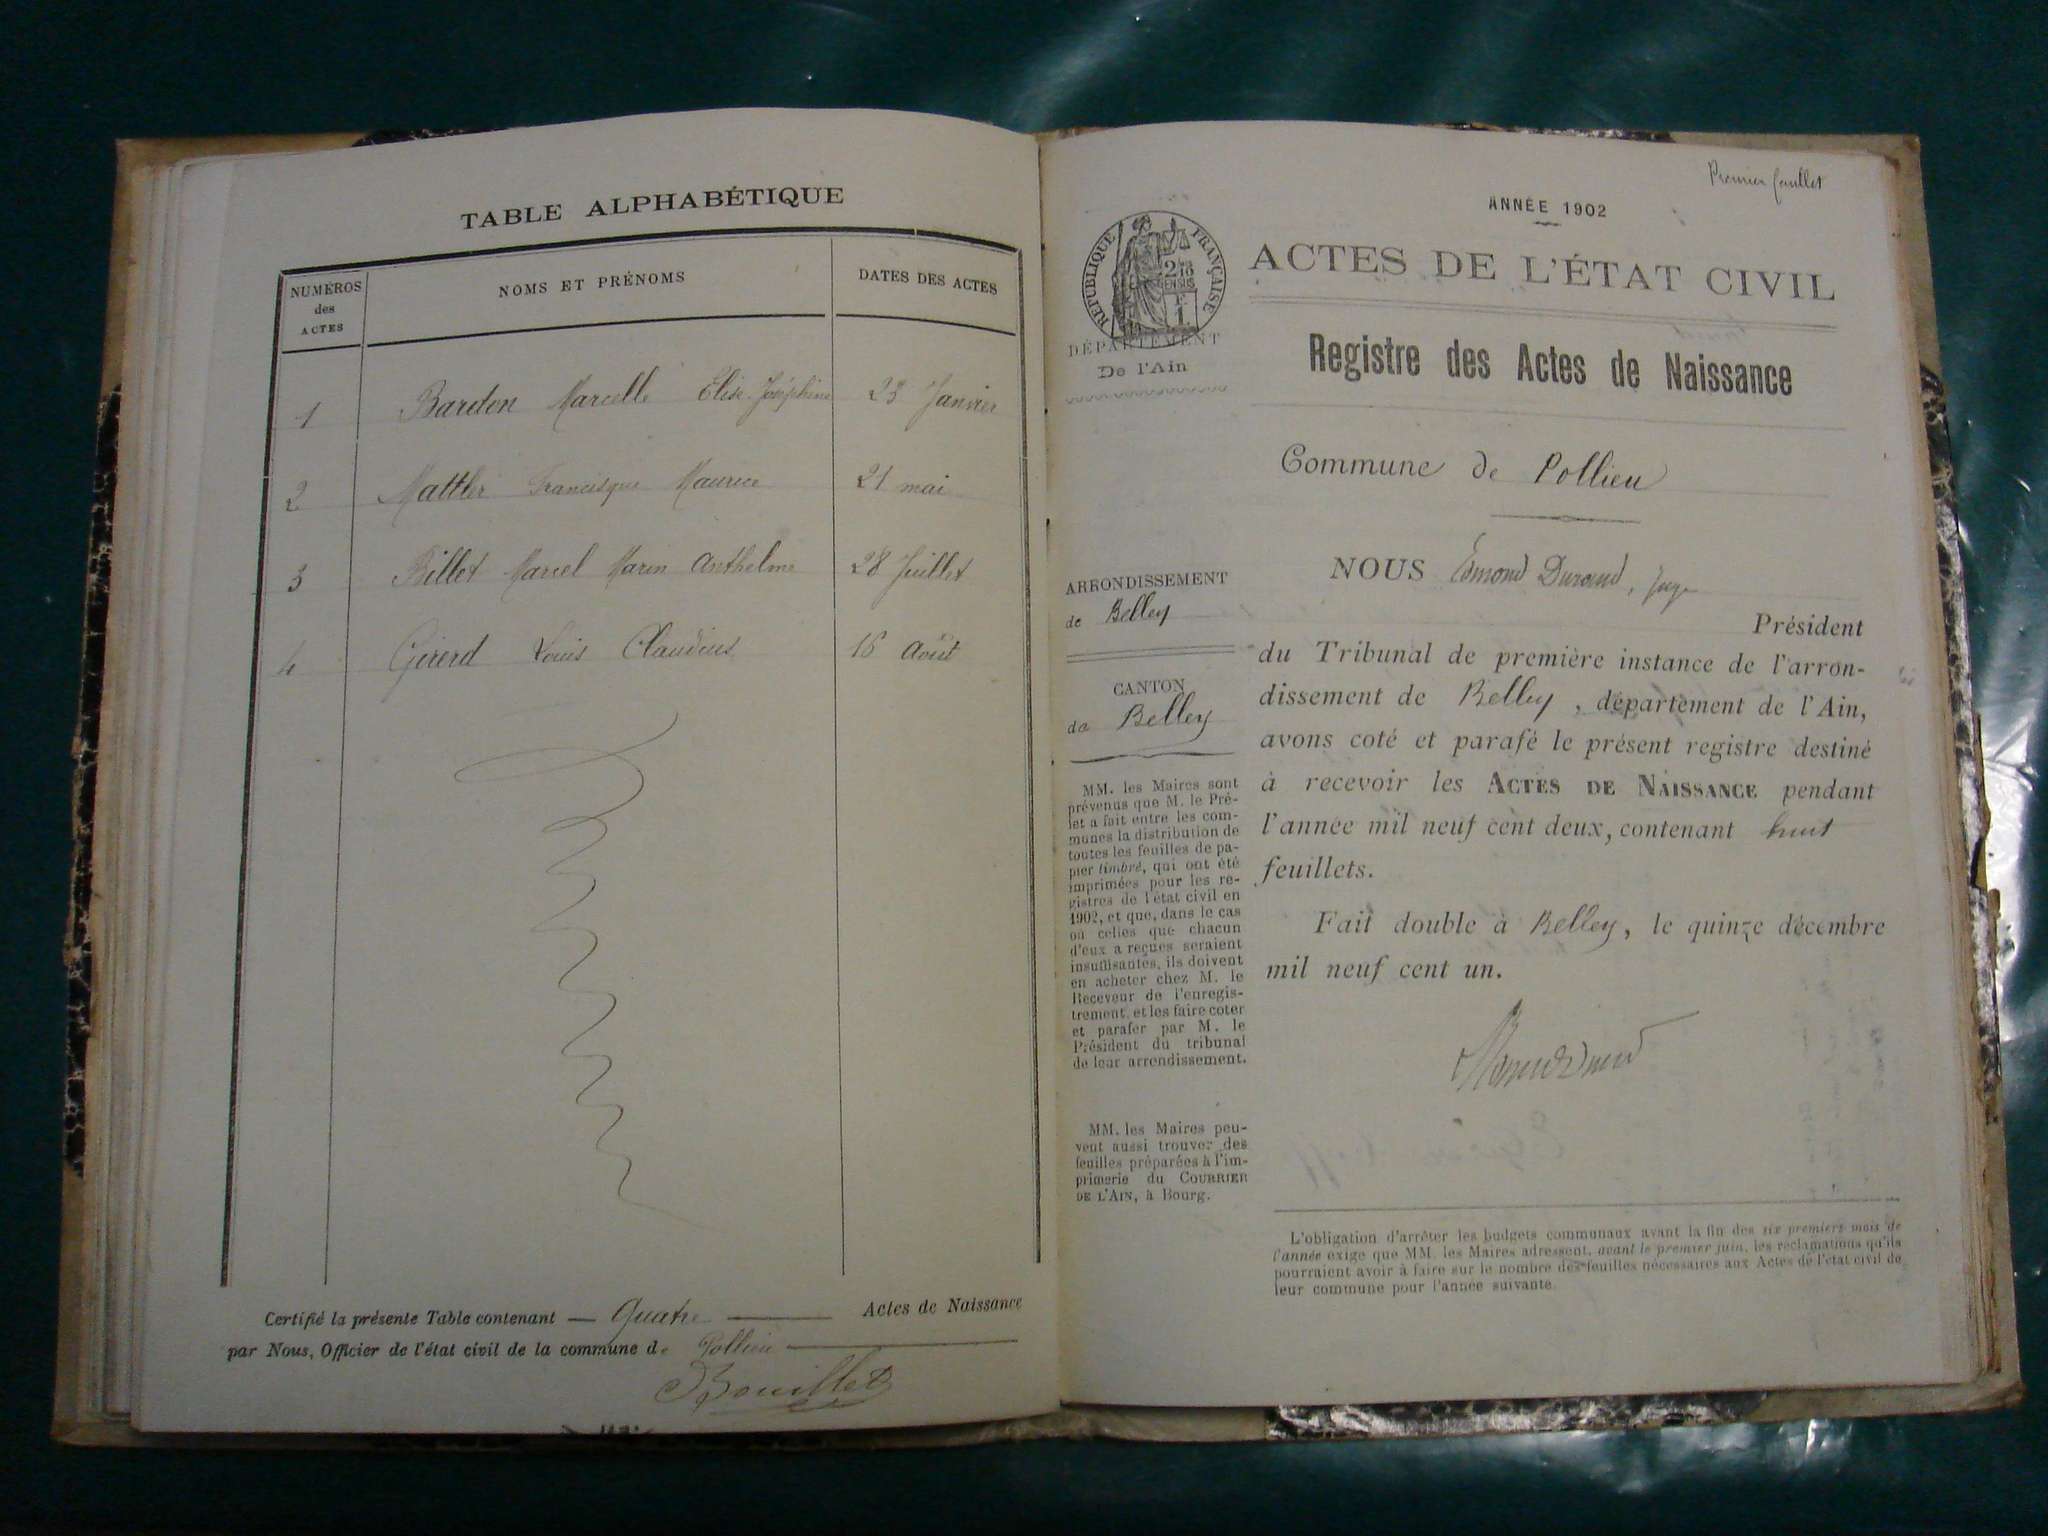 TABLE ALPHABÉTIQUE
NUMÉROS des ACTES
NOMS ET PRÉNOMS
DATES DES ACTES
1 Bardon Marcelle Elise Joséphine 23 Janvier
2 Mattler Francisque Maurice 21 mai
3 Billet Marcel Marin Anthelme 28 Juillet
4 Girerd Louis Claudius 16 Août
Certifié la présente Table contenant — Quatre — Actes de Naissance
par Nous, Officier de l'état civil de la commune de Pollieu
Bouillet
Premier feuillet
ANNÉE 1902
RÉPUBLIQUE FRANÇAISE
ACTES DE L'ÉTAT CIVIL
DÉPARTEMENT
De l'Ain
Registre des Actes de Naissance
Commune de Pollieu
ARRONDISSEMENT
de Belley
CANTON
de Belley
MM. les Maires sont
prévenus que M. le Pré-
fet a fait entre les com-
munes la distribution de
toutes les feuilles de pa-
pier timbré, qui ont été
imprimées pour les re-
gistres de l'état civil en
1902, et que, dans le cas
où celles que chacun
d'eux a reçues seraient
insuffisantes, ils doivent
en acheter chez M. le
Receveur de l'enregis-
trement, et les faire coter
et parafer par M. le
Président du tribunal
de leur arrondissement.
MM. les Maires peu-
vent aussi trouver des
feuilles préparées à l'im-
primerie du COURRIER
DE L'AIN, à Bourg.
NOUS Edmond Durand, Juge
Président
du Tribunal de première instance de l'arron-
dissement de Belley, département de l'Ain,
avons coté et parafé le présent registre destiné
à recevoir les ACTES DE NAISSANCE pendant
l'année mil neuf cent deux, contenant huit
feuillets.
Fait double à Belley, le quinze décembre
mil neuf cent un.
L'obligation d'arrêter les budgets communaux avant la fin des six premiers mois de
l'année exige que MM. les Maires adressent, avant le premier juin, les réclamations qu'ils
pourraient avoir à faire sur le nombre des feuilles nécessaires aux Actes de l'état civil de
leur commune pour l'année suivante.